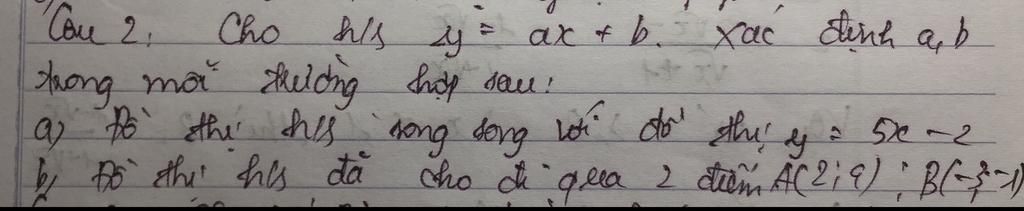 Câu 2: Cho h/s y = ax + b. Xác định a, b
trong mỗi trường hợp sau:
a) Đồ thị h/s song song với đồ thị y = 5x - 2
b) Đồ thị h/s đã cho đi qua 2 điểm A(2; 9); B(